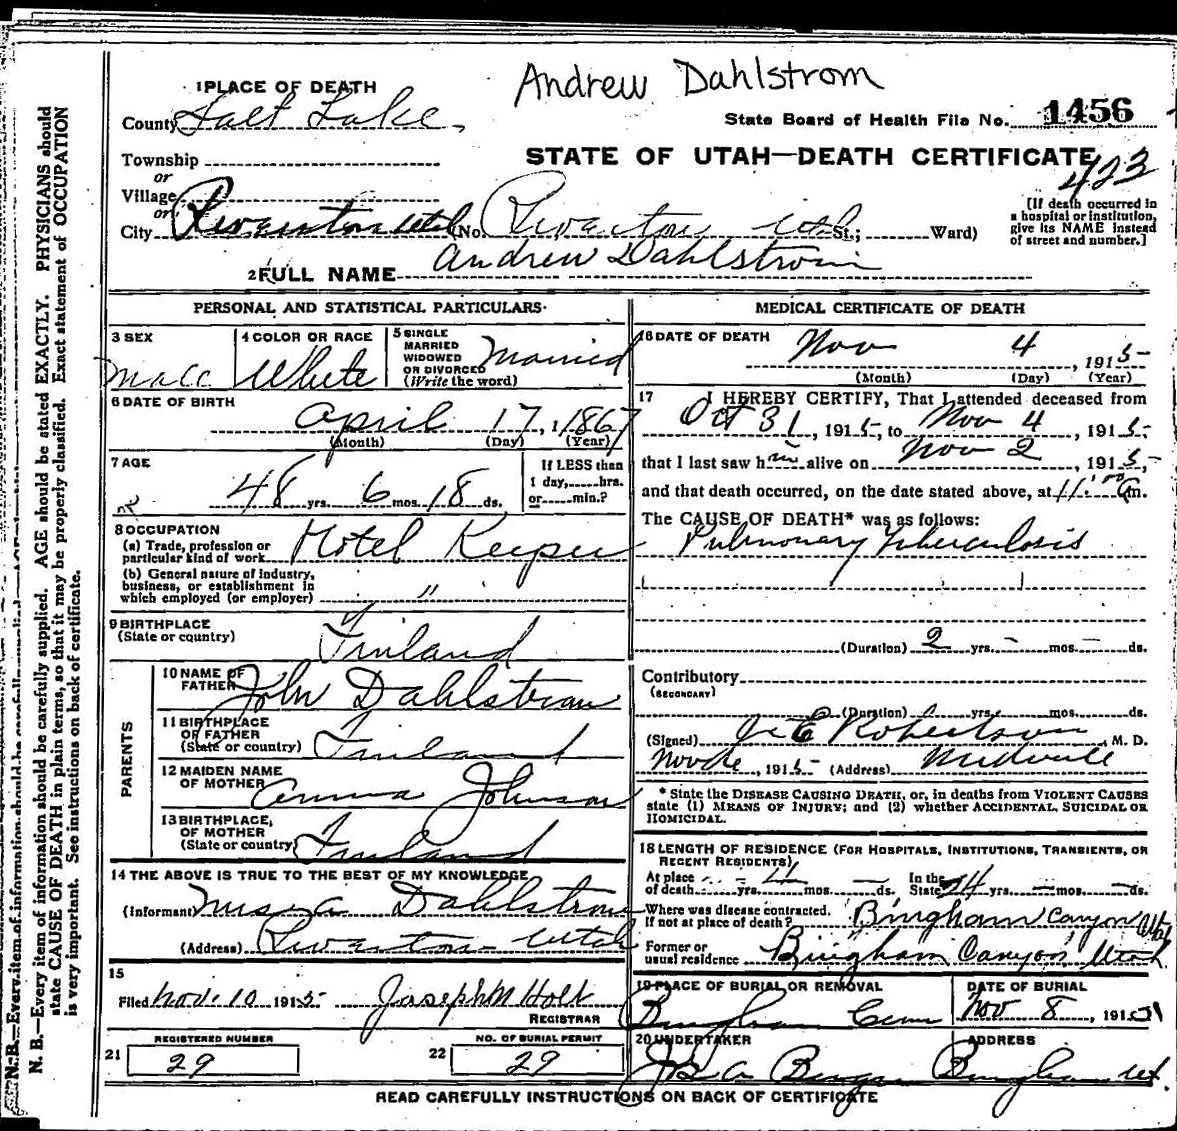 Andrew Dahlstrom
1 PLACE OF DEATH
County Salt Lake,
State Board of Health File No. 1456
STATE OF UTAH—DEATH CERTIFICATE
423
Township
or
Village
or
City Riverton Utah (No. Riverton Utah St.; Ward)
[If death occurred in
a hospital or institution,
give its NAME instead
of street and number.]
2 FULL NAME Andrew Dahlstrom
PERSONAL AND STATISTICAL PARTICULARS
3 SEX
Male
4 COLOR OR RACE
White
5 SINGLE
MARRIED
WIDOWED
OR DIVORCED
(Write the word)
Married
6 DATE OF BIRTH
April 17, 1867
(Month) (Day) (Year)
7 AGE
48 yrs. 6 mos. 18 ds.
If LESS than
1 day, hrs.
or min.?
8 OCCUPATION
(a) Trade, profession or
particular kind of work Hotel Keeper
(b) General nature of industry,
business, or establishment in
which employed (or employer) "
9 BIRTHPLACE
(State or country)
Finland
PARENTS
10 NAME OF
FATHER John Dahlstrom
11 BIRTHPLACE
OF FATHER
(State or country) Finland
12 MAIDEN NAME
OF MOTHER Anna Johnson
13 BIRTHPLACE,
OF MOTHER
(State or country) Finland
14 THE ABOVE IS TRUE TO THE BEST OF MY KNOWLEDGE
(Informant) Mrs A Dahlstrom
(Address) Riverton Utah
15
Filed Nov. 10 1915 Joseph M Holt
REGISTRAR
REGISTERED NUMBER
21 29
NO. OF BURIAL PERMIT
22 29
MEDICAL CERTIFICATE OF DEATH
16 DATE OF DEATH
Nov 4, 1915
(Month) (Day) (Year)
17 I HEREBY CERTIFY, That I attended deceased from
Oct 31, 1915, to Nov 4, 1915,
that I last saw him alive on Nov 2, 1915,
and that death occurred, on the date stated above, at 11:00 m.
The CAUSE OF DEATH* was as follows:
Pulmonary Tuberculosis
(Duration) 2 yrs. – mos. – ds.
Contributory
(SECONDARY)
(Duration) yrs. mos. ds.
(Signed) Robertson, M. D.
1915 (Address) Midvale
* State the DISEASE CAUSING DEATH, or, in deaths from VIOLENT CAUSES
state (1) MEANS OF INJURY; and (2) whether ACCIDENTAL, SUICIDAL OR
HOMICIDAL.
18 LENGTH OF RESIDENCE (FOR HOSPITALS, INSTITUTIONS, TRANSIENTS, OR
RECENT RESIDENTS)
At place In the
of death – yrs. mos. – ds. State yrs. – mos. – ds.
Where was disease contracted.
If not at place of death? Bingham Canyon Utah
Former or
usual residence Bingham Canyon Utah
19 PLACE OF BURIAL OR REMOVAL
Bingham Cem
DATE OF BURIAL
Nov 8, 1915
20 UNDERTAKER
ADDRESS
Bingham Ut.
READ CAREFULLY INSTRUCTIONS ON BACK OF CERTIFICATE
N. B.—Every item of information should be carefully supplied. AGE should be stated EXACTLY. PHYSICIANS should
state CAUSE OF DEATH in plain terms, so that it may be properly classified. Exact statement of OCCUPATION
is very important. See instructions on back of certificate.